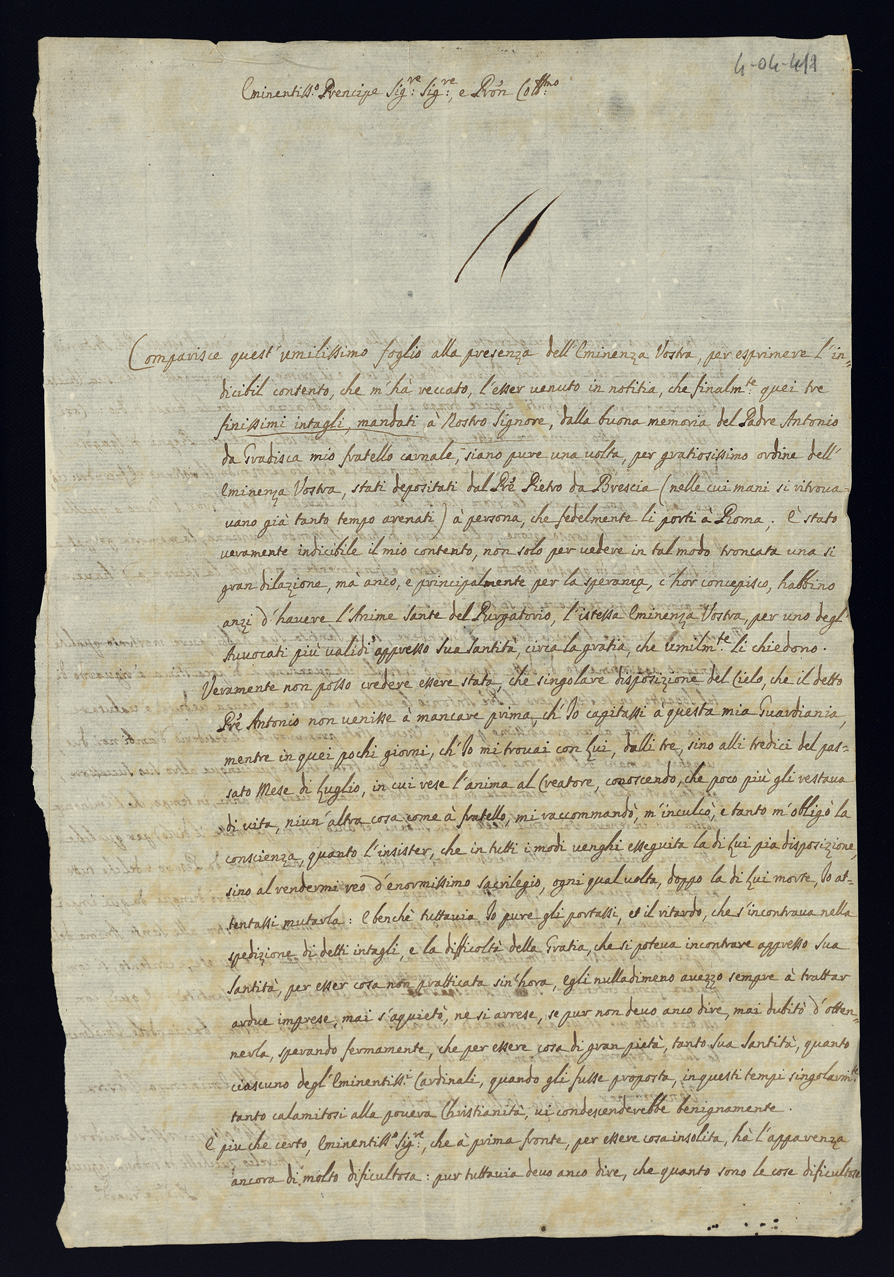 4-04-412
Eminentiss:o Prencipe Sig:re Sig:re, e Pro'n Co:ll:mo
Comparisce quest' umilissimo foglio alla presenza dell'Eminenza Vostra, per esprimere l'in-
dicibil contento, che m'hà reccato, l'esser venuto in notitia, che finalm:te quei tre
finissimi intagli, mandati à Nostro Signore, dalla buona memoria del Padre Antonio
da Gradisca mio fratello carnale, siano pure una volta, per gratiosissimo ordine dell'
Eminenza Vostra, stati depositati dal Pre' Pietro da Brescia (nelle cui mani si ritroua-
uano già tanto tempo arenati) à persona, che fedelmente li porti à Roma; E' stato
ueramente indicibile il mio contento, non solo per vedere in tal modo troncata una si
gran dilazione, mà anco, e principalmente per la speranza, c'hor concepisco, habbino
anzi d'hauere l'Anime Sante del Purgatorio, l'istessa Eminenza Vostra, per uno degl'
Auuocati più validi appresso Sua Santità, circa la gratia, che umilm:te li chiedono.
Veramente non posso credere essere stata, che singolare disposizione del Cielo, che il detto
Pre' Antonio non venisse à mancare prima, ch'Io capitassi à questa mia Guardiania,
mentre in quei pochi giorni, ch'Io mi trouai con Lui, dalli tre, sino alli tredici del pas-
sato Mese di Luglio, in cui rese l'anima al Creatore, conoscendo, che poco più gli restaua
di vita, niun'altra cosa come à fratello, mi raccommandò, m'inculcò, e tanto m'obligò la
conscienza, quanto l'insister, che in tutti i modi venghi esseguita la di Lui pia disposizione,
sino al rendermi reo d'enormissimo sacrilegio, ogni qual uolta, doppo la di Lui morte, Io at-
tentassi mutarla: E benchè tuttauia Io pure gli portassi, et il ritardo, che s'incontraua nella
spedizione di detti intagli, e la difficoltà della Gratia, che si poteua incontrare appresso Sua
Santità, per esser cosa non pratticata sin'hora, egli nulladimeno auezzo sempre à trattar
ardue imprese, mai s'aquietò, ne si arrese, se pur non deuo anco dire, mai dubitò d'otten-
nerla, sperando fermamente, che per essere cosa di gran pietà, tanto Sua Santità, quanto
ciascuno degl'Eminentiss:i Cardinali, quando gli fusse proposta, in questi tempi singolarm:te
tanto calamitosi alla pouera Christianità, ui condescenderebbe benignamente.
E' più che certo, Eminentiss:o Sig:re, che à prima fronte, per essere cosa insolita, hà l'apparenza
ancora di molto dificultosa: pur tuttauia deuo anco dire, che quanto sono le cose dificultose